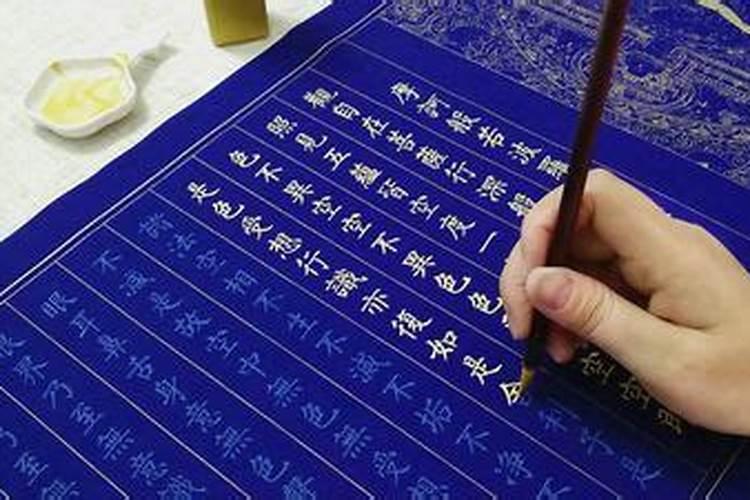 摩訶般若波羅
觀自在菩薩行深般
照見五蘊皆空度一
色不異空空不異色色空空即
是色受想行識亦復如是舍利子是
諸法空相不生不滅不垢不淨
不減是故空中無色無受想
眼耳鼻舌身意無色聲
眼界乃至無意識
乃至無